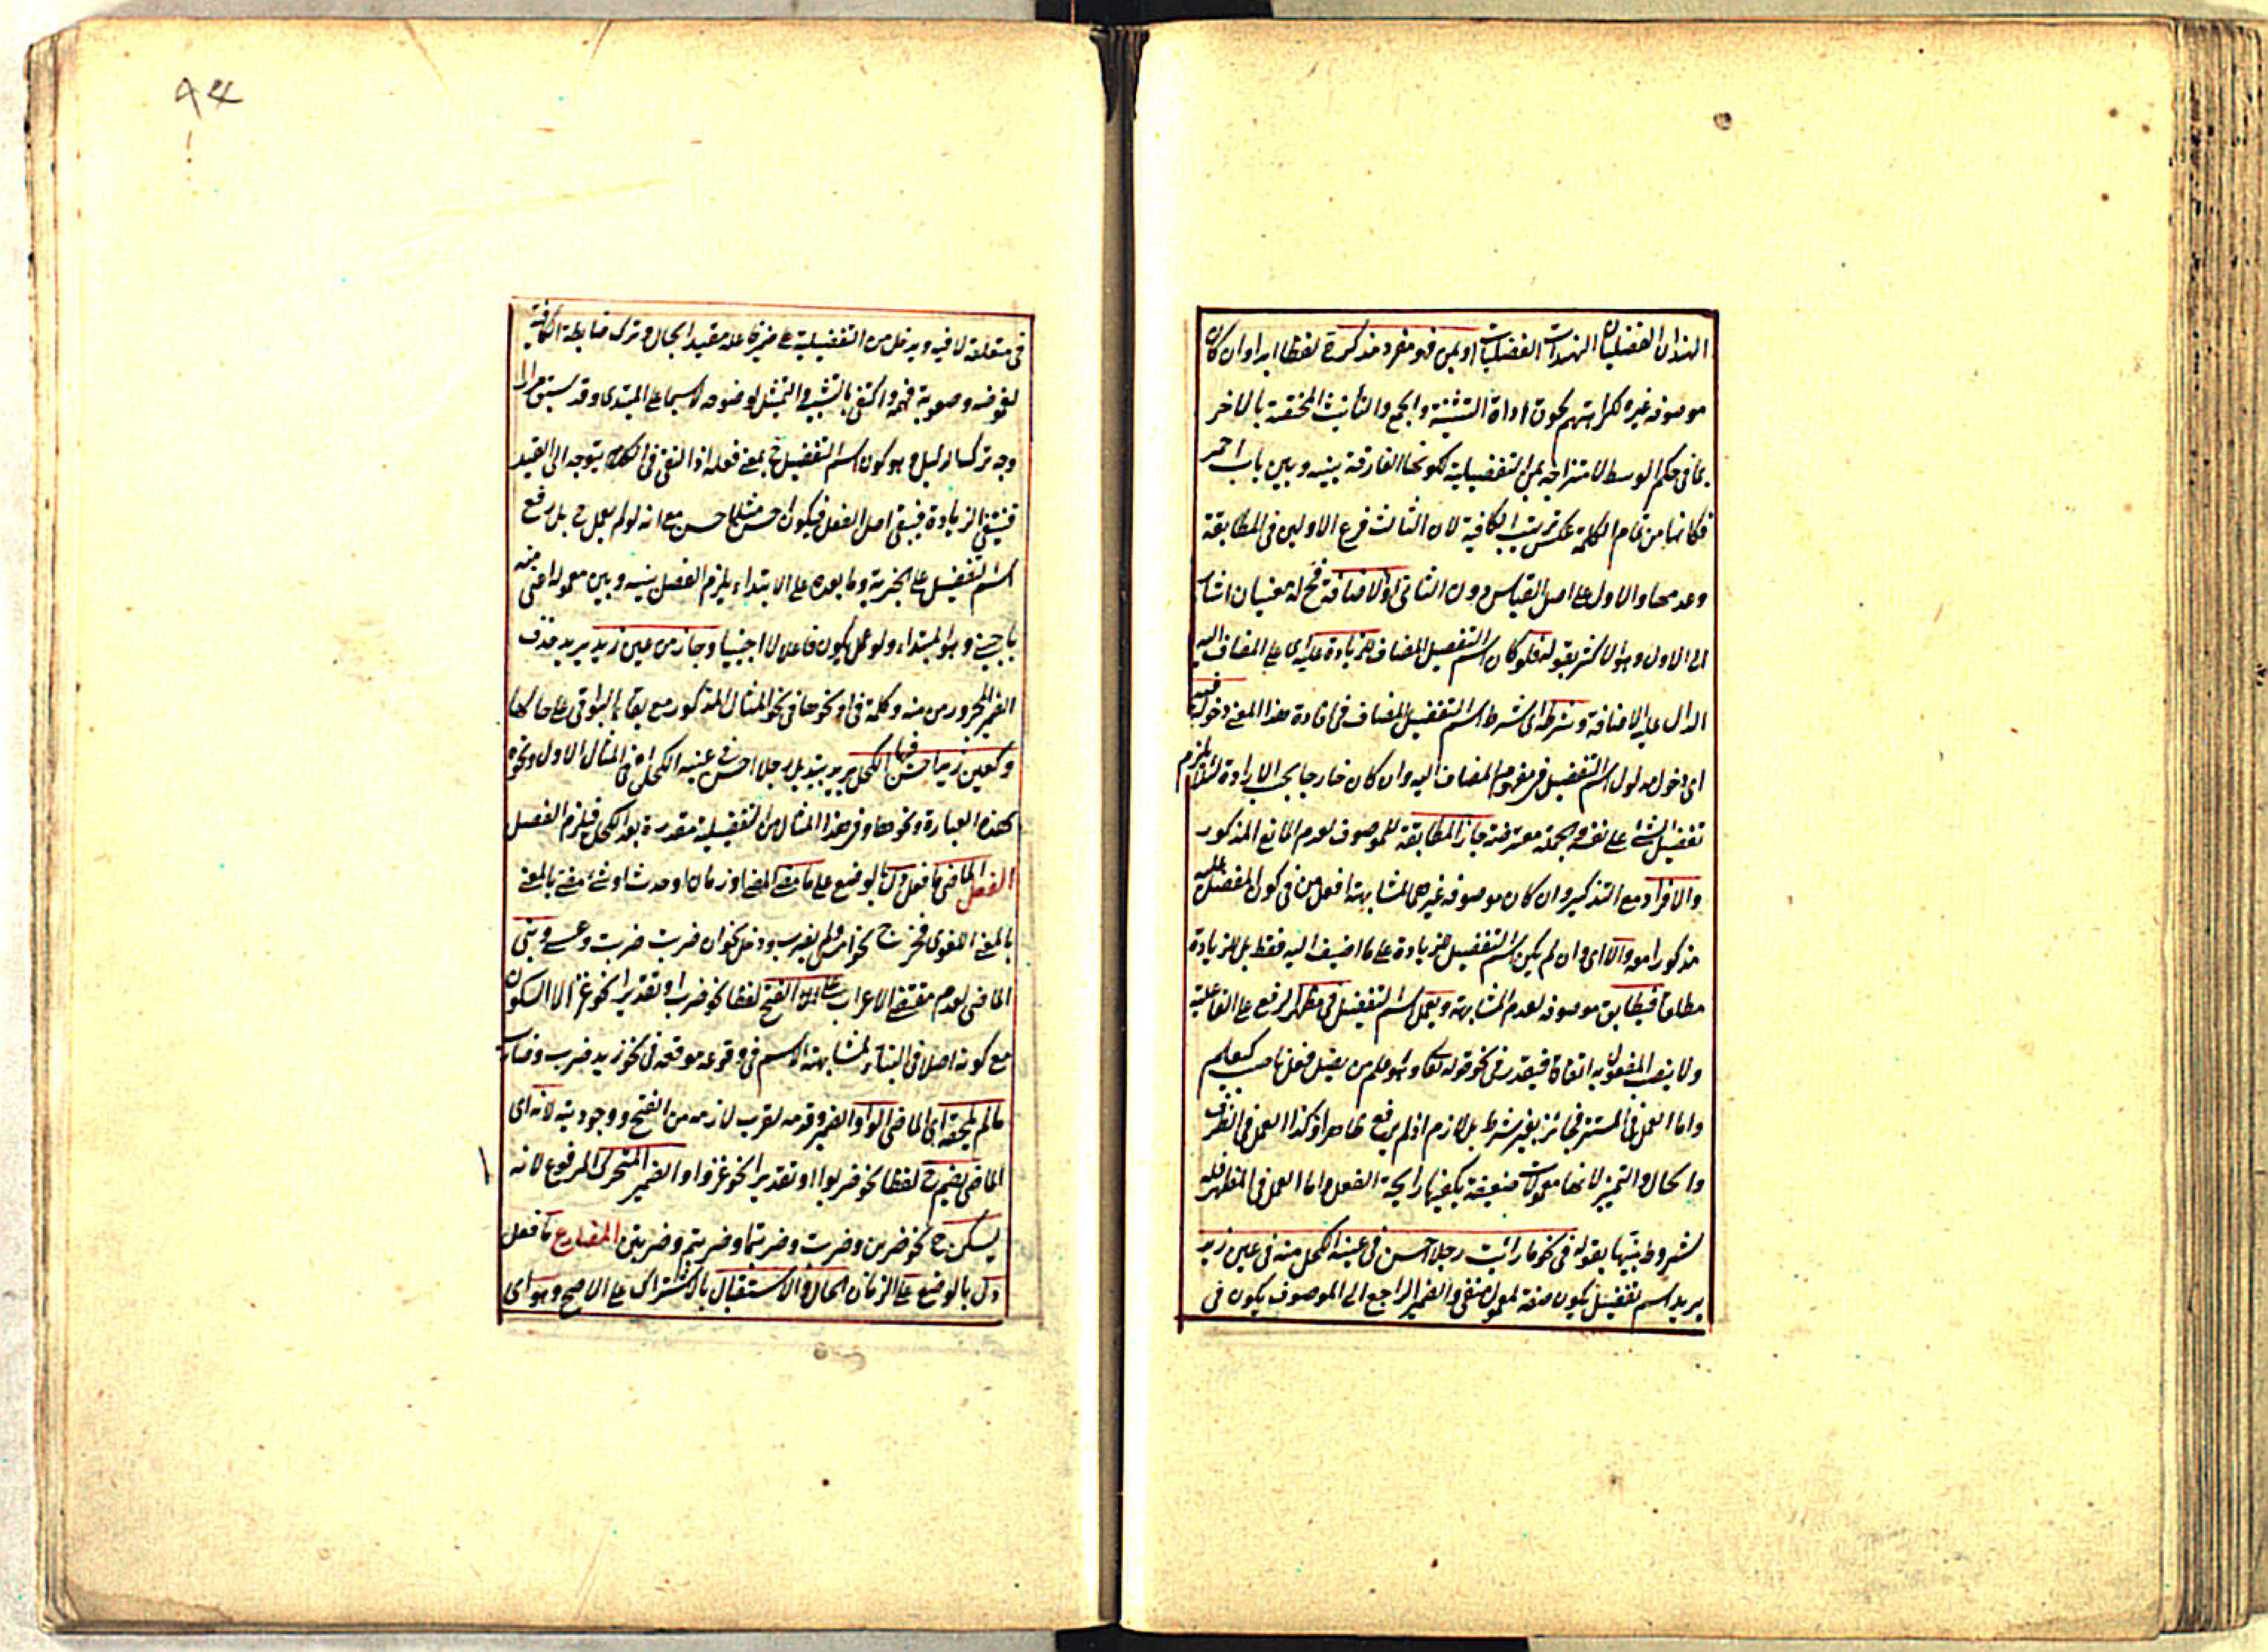 الهندان الفضليان الهندات الفضليات او بمن فهو مفرد مذكر لفظا ابدا وان كان
موصوفه غيره لكراهتهم لحوق اداة التثنية والجمع والتانيث المختصة بالاخر
بما فى حكم الوسط لامتزاجه بمن التفضيلية لكونها الفارقة بينه وبين باب احمر
فكانها من تمام الكلمة عكس ترتيب الكافية لان الثالث فرع الاولين فى المطابقة
وعدمها والاول على اصل القياس دون الثانى او الاضافة فح له معنيان اشار
الى الاول وهو الاكثر بقوله فلو كان اسم التفضيل المضاف للزيادة عليه اى على المضاف اليه
الدال عليه الاضافة وشرطه اى شرط اسم التفضيل المضاف فى افادة هذا المعنى دخوله فيه
اى دخول مدلول اسم التفضيل فى مفهوم المضاف اليه وان كان خارجا بحسب الارادة لئلا يلزم
تفضيل الشئ على نفسه والجملة معترضة جاز المطابقة للموصوف لعدم المانع المذكور
والافراد مع التذكير وان كان موصوفه غيرهما لمشابهته افعل من فى كون المفضل عليه
مذكورا معه والا اى وان لم يكن اسم التفضيل للزيادة على ما اضيف اليه فقط بل للزيادة
مطلقا فيطابق موصوفه لعدم المشابهة ويعمل اسم التفضيل فى مظهر الرفع على الفاعلية
ولا ينصب المفعول به اتفاقا فيقدر فى نحو قوله تعالى هو اعلم من يضل فعل ناصب كيعلم
واما العمل فى المستتر فجائز بغير شرط بل لازم اذ لم يرفع ظاهرا وكذا العمل فى الظرف
والحال والتمييز لانها معمولات ضعيفة يكفيها رايحة الفعل واما العمل فى المظهر فله
شروط بينها بقوله فى نحو ما رايت رجلا احسن فى عينه الكحل منه فى عين زيد
يريد اسم تفضيل يكون صفة لمعمول منفى والضمير الراجع الى الموصوف يكون فى
فى متعلقه لا فيه ويدخل من التفضيلية على ضمير فاعله مقيدا بحال وترك ضابطة الكافية
لغموضه وصعوبة فهمه واكتفى بالتشبيه والتمثيل لوضوحه لا سيما على المبتدى وقد سبق مرارا
وجه تركه الدليل وهو كون اسم التفضيل ح بمعنى فعله اذ النفى فى الكلام يتوجه الى القيد
فينتفى الزيادة فيبقى اصل الفعل فيكون احسن مثلا حسن مع انه لو لم يعمل ح بل رفع
اسم التفضيل على الخبرية وما بعده على الابتداء يلزم الفصل بينه وبين معموله اعنى منه
باجنبى وهو المبتداء ولو عمل يكون فاعلا لا اجنبيا وجاز من عين زيد يريد حذف
الضمير المجرور من منه وكلمة فى او نحوها فى نحو المثال المذكور مع بقاء البواقى على حالها
وكعين زيد احسن فيها الكحل يريد بتبديل رجلا احسن فى عينه الكحل فى المثال الاول ونحوه
بهذه العبارة ونحوها وفى هذا المثال من التفضيلية مقدرة بعد الكحل فيلزم الفصل
الفعل الماضى ما فعل دل بالوضع على ما مضى لمعنى او زمان او حدث او شئ مضى بالمعنى
بالمعنى اللغوى فخرج نحو امس ولم يضرب ودخل نحو ان ضربت ضربت وعسى وبنى
الماضى لعدم مقتضى الاعراب على الفتح لفظا نحو ضرب او تقديرا نحو غزا لا السكون
مع كونه اصلا فى البناء لمشابهته الاسم فى وقوعه موقعه فى نحو زيد ضرب وضارب
ما لم يلحقه اى الماضى الواو الضمير وقدمه لقرب لازمه من الفتح ووجوديته لانه اى
الماضى يضم ح لفظا نحو ضربوا او تقديرا نحو غزوا او الضمير المتحرك المرفوع لانه
يسكن ح نحو ضربن وضربت وضربتما وضربتم وضربتن المضارع ما فعل
دل بالوضع على الزمان الحال والاستقبال بالاشتراك على الاصح وهو اى